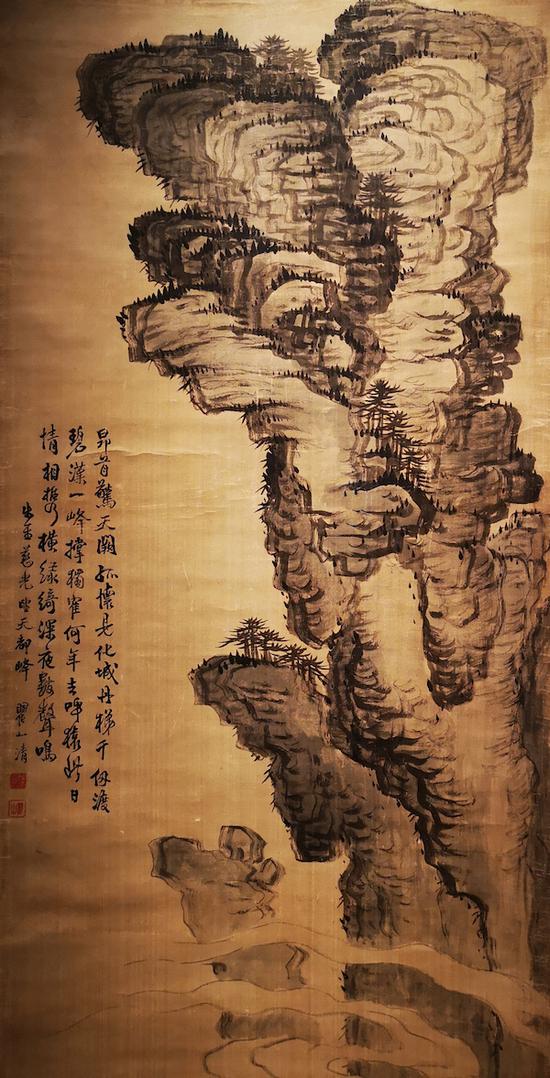 昂首驚天闕孤懷是化城丹梯千仞渡
碧漢一峰撐獨寉何年去呼猿此日
情相携橫綠綺深夜數聲鳴
坐香慈光望天都峰 瞿山清